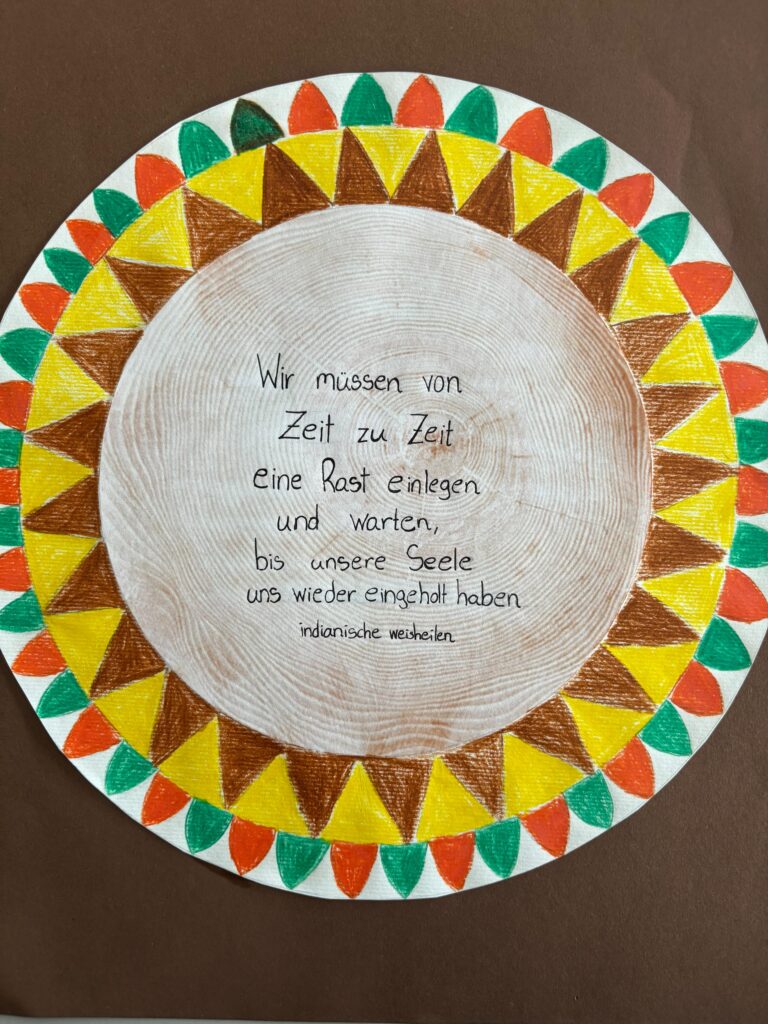 Wir müssen von
Zeit zu Zeit
eine Rast einlegen
und warten,
bis unsere Seele
uns wieder eingeholt haben
indianische weisheilen